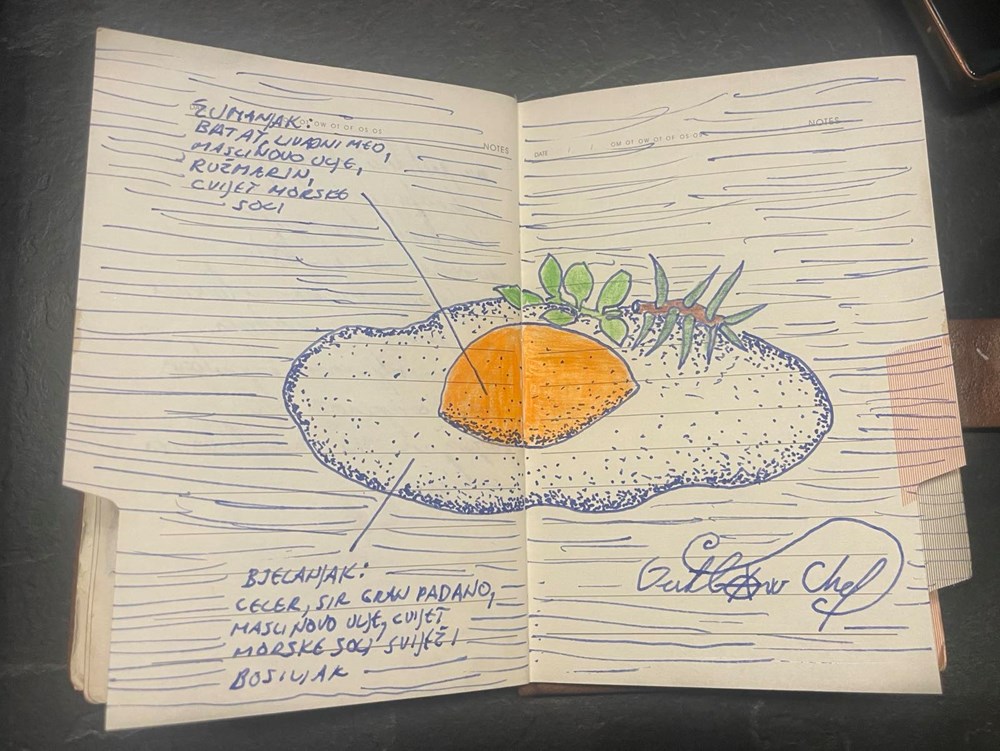 ŽUMANJAK:
BATAT, LIVADNI MED,
MASLINOVO ULJE,
RUŽMARIN,
CVIJET MORSKE
SOLI
NOTES
NOTES
DATE / /
BJELANJAK:
CELER, SIR GRAN PADANO,
MASLINOVO ULJE, CVIJET
MORSKE SOLI SVJEŽI
BOSILJAK
Chef